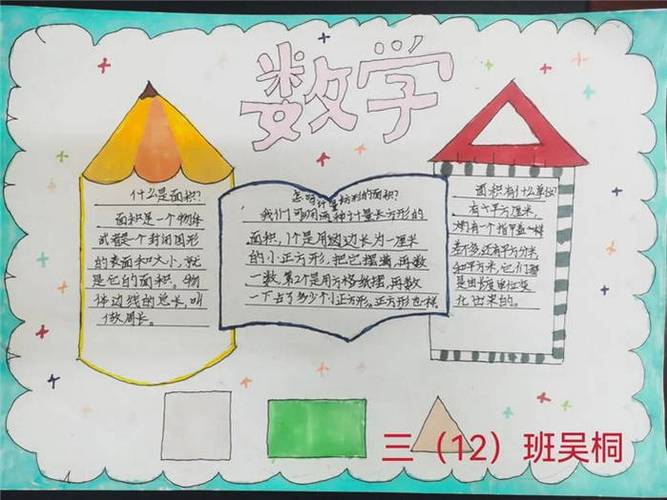 数学
什么是面积?
面积是一个物体
或者是一个封闭图形
的表面和大小,就
是它的面积。物
体边线的总长,叫
做周长。
怎样计量方形的面积?
我们可用两种计量长方形的
面积,1个是用边边长为一厘米
的小正方形,把它摆满,再数
一数,第2个是用方格纸摆,再数
一下占了多少个小正方形。正方形也一样。
面积有什么单位?
有平方厘米,
有一个指甲盖一样
差不多,还有平方分米
和平方米,它们都
是由长度单位变
化出来的。
三(12)班吴桐